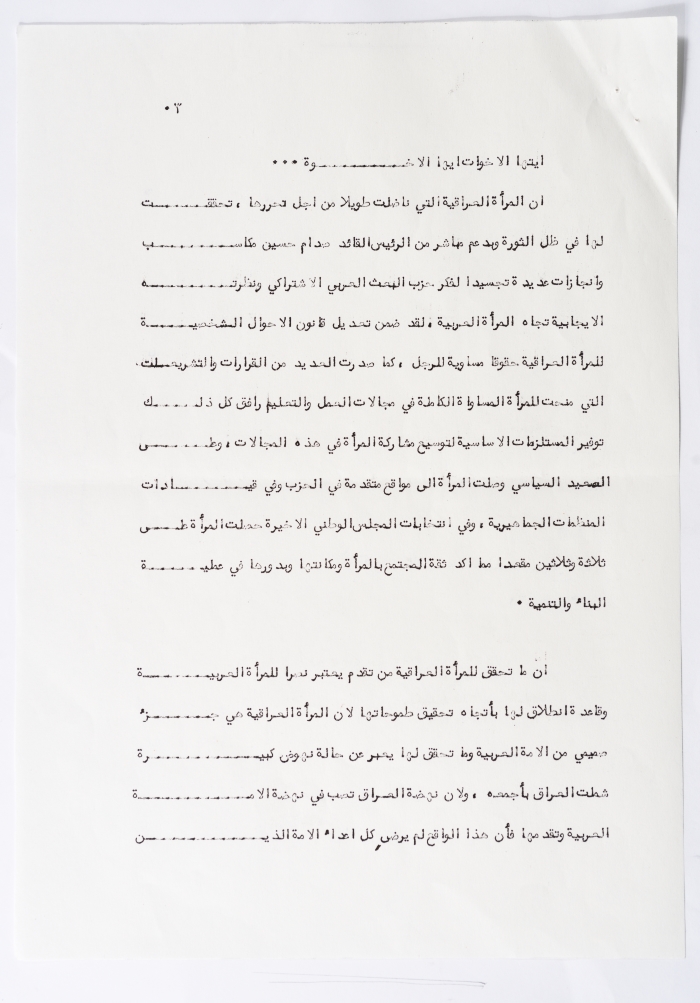 ٣ •
ايتها الاخوات ايها الاخـــــــوة •••
ان المرأة العراقية التي ناضلت طويلا من اجل تحررها ، تحققـــــت
لها في ظل الثورة وبدعم مباشر من الرئيس القائد صدام حسين مكاســـــب
وانجازات عديدة تجسيدا لفكر حزب البعث العربي الاشتراكي ونظرتـــــه
الايجابية تجاه المرأة العربية ، لقد ضمن تعديل قانون الاحوال الشخصيـــة
للمرأة العراقية حقوقا مساوية للرجل ، كما صدرت العديد من القرارات والتشريعـات
التي منحت للمرأة المساواة الكاملة في مجالات العمل والتعليم رافق كل ذلـــــك
توفير المستلزمات الاساسية لتوسيع مشاركة المرأة في هذه المجالات ، وعلـــــى
الصعيد السياسي وصلت المرأة الى مواقع متقدمة في الحزب وفي قيـــــادات
المنظمات الجماهيرية ، وفي انتخابات المجلس الوطني الاخيرة حصلت المرأة علـــى
ثلاثة وثلاثين مقعدا مما اكد ثقة المجتمع بالمرأة ومكانتها وبدورها في عمليـــــة
البناء والتنمية •
أن ما تحقق للمرأة العراقية من تقدم يعتبر نصرا للمرأة العربيـــــة
وقاعدة انطلاق لها بأتجاه تحقيق طموحاتها لان المرأة العراقية هي جـــــزء
صميمي من الامة العربية وما تحقق لها يعبر عن حالة نهوض كبيـــــــرة
شملت العراق بأجمعه ، ولان نهضة العراق تصب في نهضة الامـــــــة
العربية وتقدمها فأن هذا الواقع لم يرض كل اعداء الامة الذيـــــــن